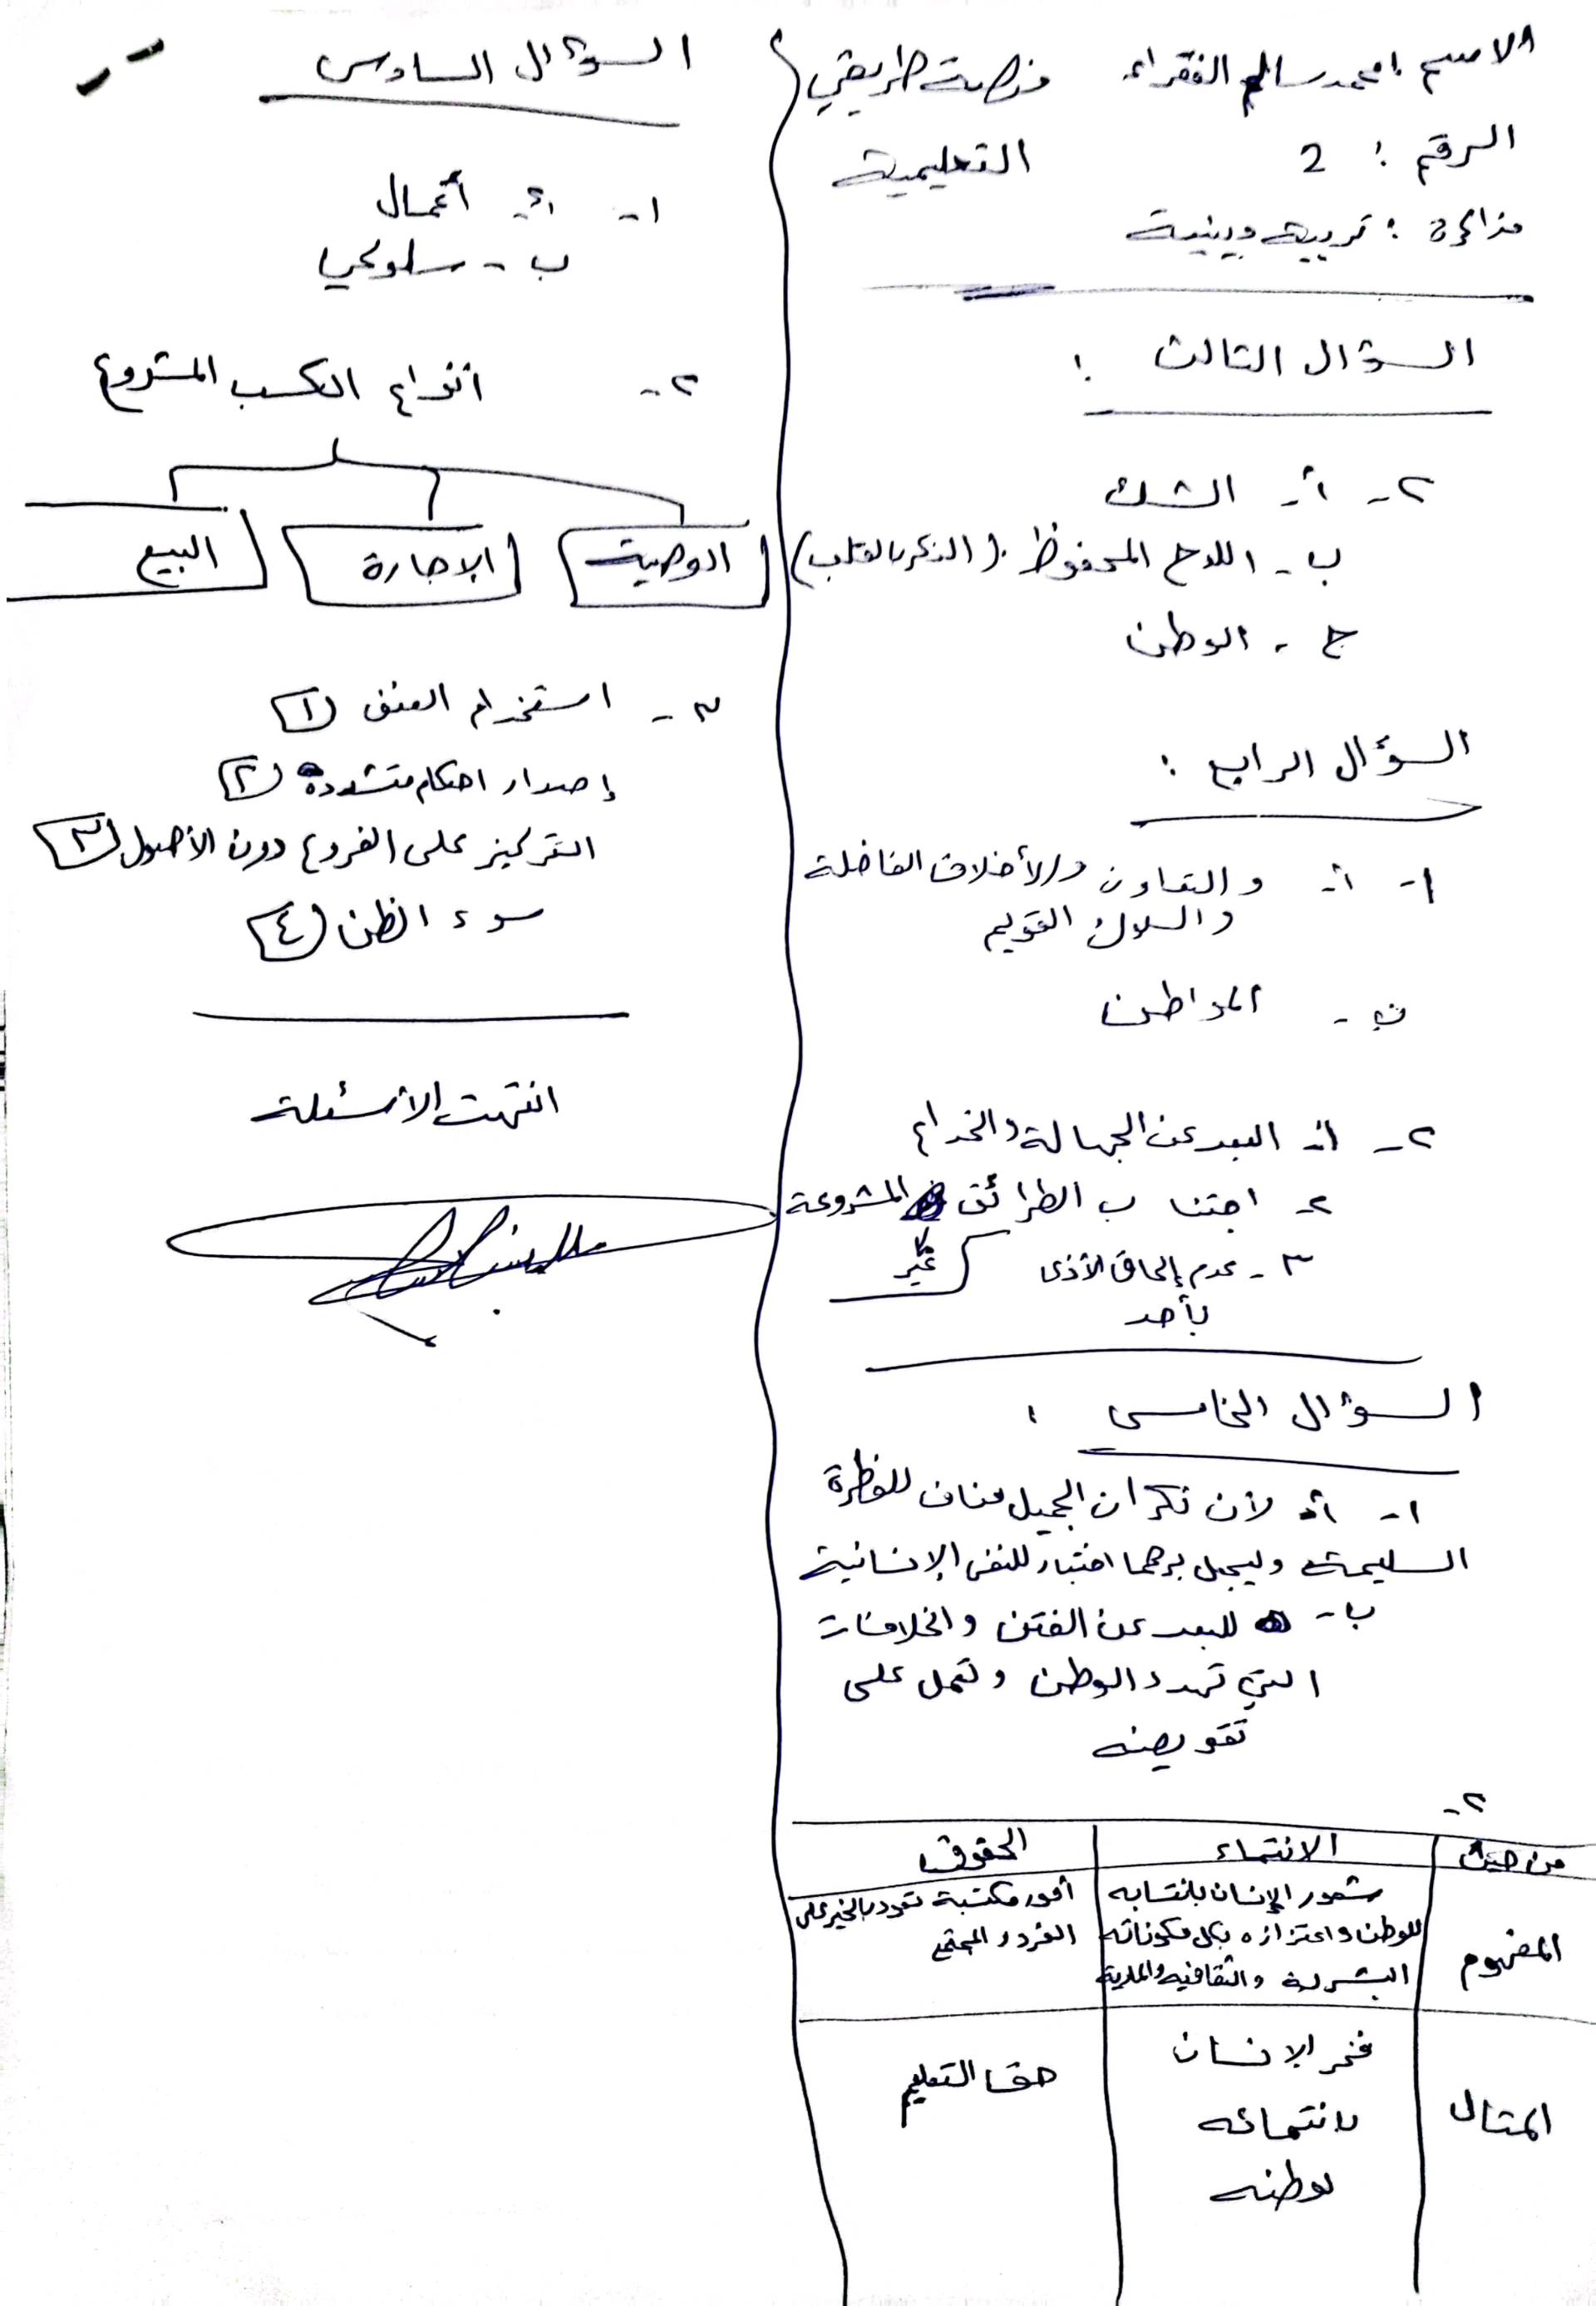 الاسم : محمد سالم الفقراء
منصة طريقي
الرقم : 2
التعليمية
مذاكرة : تربية دينية
السؤال الثالث :
٢- أ- الشك
ب- اللوح المحفوظ . (الذكر بالقلب)
ج - الوطن
السؤال الرابع :
١- أ- والتعاون والأخلاق الفاضلة
والسلوك القويم
ب - المواطن
٢- ١- البعد عن الجهالة والخداع
٢- اجتناب الطرائق المشروعة
غير
٣- عدم إلحاق الأذى
بأحد
السؤال الخامس :
١- أ- لأن نكران الجميل مناف للفطرة
السليمة وليجعل برهما اختبار للنفس الإنسانية
ب- للبعد عن الفتن والخلافات
التي تهدد الوطن وتعمل على
تقويضه
٢-
من حيث الانتماء الحقوق
المفهوم
شعور الإنسان بانتسابه
للوطن واعتزازه بكل مكوناته
البشرية والثقافية والمادية
أمور مكتسبة تعود بالخير على
الفرد والمجتمع
المثال
فخر الإنسان
بانتمائه
لوطنه
حق التعليم
السؤال السادس
١- أ- أعمال
ب- سلوكي
٢- أنواع الكسب المشروع
الوصية الإجارة البيع
٣- استخدام العنف (١
إصدار احكام متشددة (٢
التركيز على الفروع دون الأصول (٣
سوء الظن (٤
انتهت الأسئلة